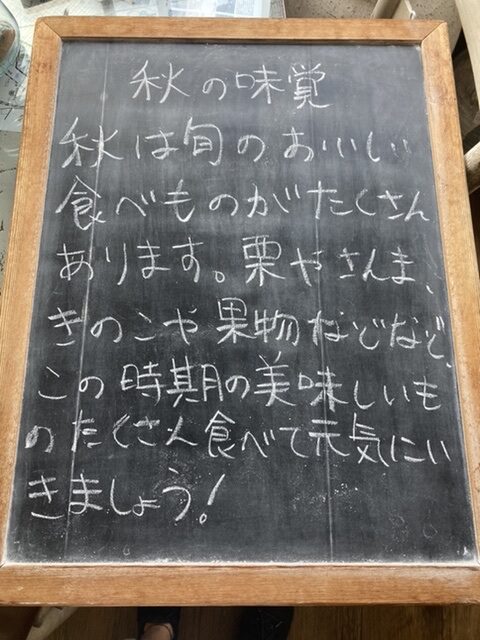 秋の味覚
秋は旬のおいしい
食べものがたくさん
あります。栗やさんま、
きのこや果物などなど、
この時期の美味しいも
のたくさん食べて元気にい
きましょう!